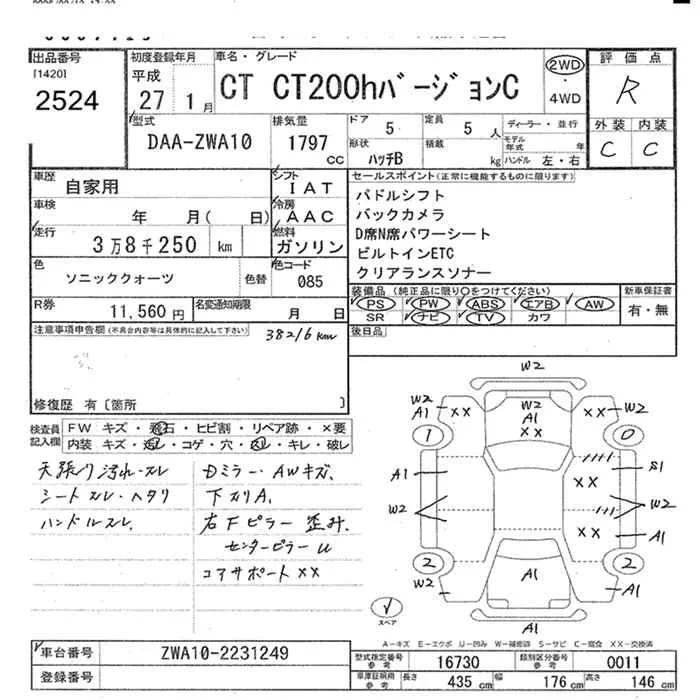 出品番号
[1420]
2524
初度登録年月
平成
27 1月
車名・グレード
CT CT200hバージョンC
2WD
・
4WD
評価点
R
外装 内装
C C
型式
DAA-ZWA10
排気量
1797
cc
ドア
5
定員
5 人
ディーラー・並行
モデル
年式 年
形状
ハッチB
積載
kg
ハンドル 左・右
車歴
自家用
シフト
IAT
車検
年 月( 日)
冷房
AAC
走行
3万8千250 km
燃料
ガソリン
色
ソニッククォーツ
色替
色コード
085
R券
11,560円
名変通知期限
月 日
セールスポイント(正常に機能するものに限ります)
パドルシフト
バックカメラ
D席N席パワーシート
ビルトインETC
クリアランスソナー
装備品 (純正品に限り○をつけてください)
PS PW ABS エアB AW
SR ナビ TV カワ
新車保証書
有・無
後日品
注意事項申告欄(不具合内容等は具体的に記入して下さい)
38216km
修復歴 有〔箇所 〕
検査員
記入欄
FW キズ・飛石・ヒビ割・リペア跡・×要
内装 キズ・汚レ・コゲ・穴・スレ・キレ・破レ
天張り汚れ・スレ
シートスレ・ヘタリ
ハンドルスレ
Dミラー・AWキズ、
下カリA、
右Fピラー 歪み、
センターピラーU
コアサポートXX
W2
W2
A1
XX
W2
A1
XX
XX
W2
A1
1
0
A1
S1
XX
W2
W2
XX
A1
2
2
W2
A1
A1
A1
スペア
A-キズ E-エクボ U-凹み W-補修跡 S-サビ C-腐食 XX-交換済
車台番号
ZWA10-2231249
登録番号
型式指定番号
参考
16730
類別区分番号
参考
0011
車庫証明用
参考
長さ
435 cm
幅
176 cm
高さ
146 cm